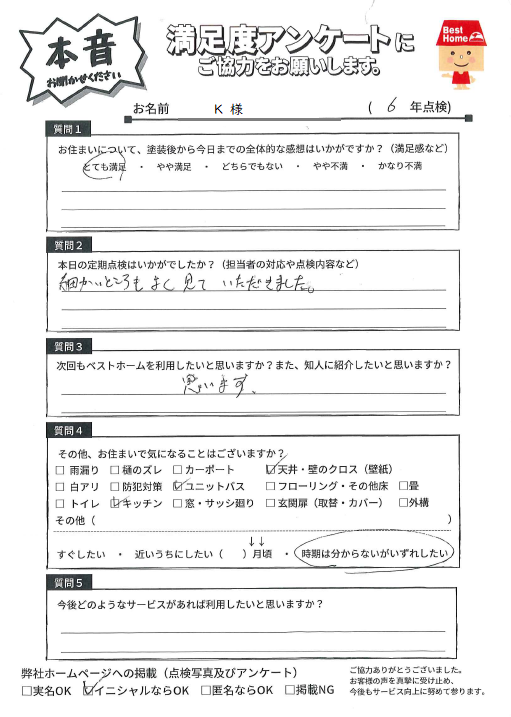 本音
お聞かせください
満足度アンケートに
ご協力をお願いします。
Best
Home
お名前 K 様 ( 6 年点検)
質問1
お住まいについて、塗装後から今日までの全体的な感想はいかがですか？（満足感など）
とても満足 ・ やや満足 ・ どちらでもない ・ やや不満 ・ かなり不満
質問2
本日の定期点検はいかがでしたか？（担当者の対応や点検内容など）
細かいところもよく見ていただきました。
質問3
次回もベストホームを利用したいと思いますか？また、知人に紹介したいと思いますか？
思います。
質問4
その他、お住まいで気になることはございますか？
□ 雨漏り □ 樋のズレ □ カーポート ☑ 天井・壁のクロス（壁紙）
□ 白アリ □ 防犯対策 ☑ ユニットバス □ フローリング・その他床 □ 畳
□ トイレ ☑ キッチン □ 窓・サッシ廻り □ 玄関扉（取替・カバー） □ 外構
その他（ ）
↓↓
すぐしたい ・ 近いうちにしたい（ ）月頃 ・ 時期は分からないがいずれしたい
質問5
今後どのようなサービスがあれば利用したいと思いますか？
弊社ホームページへの掲載（点検写真及びアンケート）
□実名OK ☑イニシャルならOK □匿名ならOK □掲載NG
ご協力ありがとうございました。
お客様の声を真摯に受け止め、
今後もサービス向上に努めて参ります。